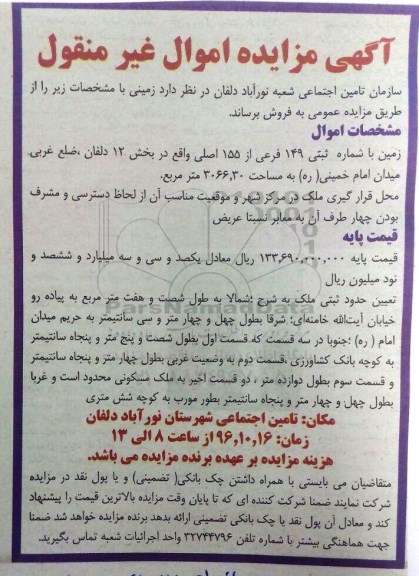 آگهی مزایده اموال غیر منقول
سازمان تامین اجتماعی شعبه نورآباد دلفان در نظر دارد زمینی با مشخصات زیر را از
طریق مزایده عمومی به فروش برساند.
مشخصات اموال
زمین با شماره ثبتی ۱۴۹ فرعی از ۱۵۵ اصلی واقع در بخش ۱۲ دلفان ،ضلع غربی
میدان امام خمینی( ره) به مساحت ۳۰۶۶,۳۰ متر مربع.
محل قرار گیری ملک در مرکز شهر و موقعیت مناسب آن از لحاظ دسترسی و مشرف
بودن چهار طرف آن به معابر نسبتا عریض
قیمت پایه
قیمت پایه ۱۳۳,۶۹۰,۰۰۰,۰۰۰ ریال معادل یکصد و سی و سه میلیارد و ششصد و
نود میلیون ریال
تعیین حدود ثبتی ملک به شرح :شمالا به طول شصت و هفت متر مربع به پیاده رو
خیابان آیت‌الله خامنه‌ای: شرقا بطول چهل و چهار متر و سی سانتیمتر به حریم میدان
امام ( ره) :جنوبا در سه قسمت که قسمت اول بطول شصت و پنج متر و پنجاه سانتیمتر
به کوچه بانک کشاورزی ،قسمت دوم به وضعیت غربی بطول چهار متر و پنجاه سانتیمتر
و قسمت سوم بطول دوازده متر ، دو قسمت اخیر به ملک مسکونی محدود است و غربا
بطول چهل و چهار متر و پنجاه سانتیمتر بطور مورب به کوچه شش متری
مکان: تامین اجتماعی شهرستان نورآباد دلفان
زمان: ۹۶,۱۰,۱۶ از ساعت ۸ الی ۱۳
هزینه مزایده بر عهده برنده مزایده می باشد.
متقاضیان می بایستی با همراه داشتن چک بانکی( تضمینی) و یا پول نقد در مزایده
شرکت نمایند ضمنا شرکت کننده ای که تا پایان وقت مزایده بالاترین قیمت را پیشنهاد
کند و معادل آن پول نقد یا چک بانکی تضمینی ارائه بدهد برنده مزایده خواهد شد ضمنا
جهت هماهنگی بیشتر با شماره تلفن ۳۲۷۴۴۷۹۶ واحد اجرائیات شعبه تماس بگیرید.